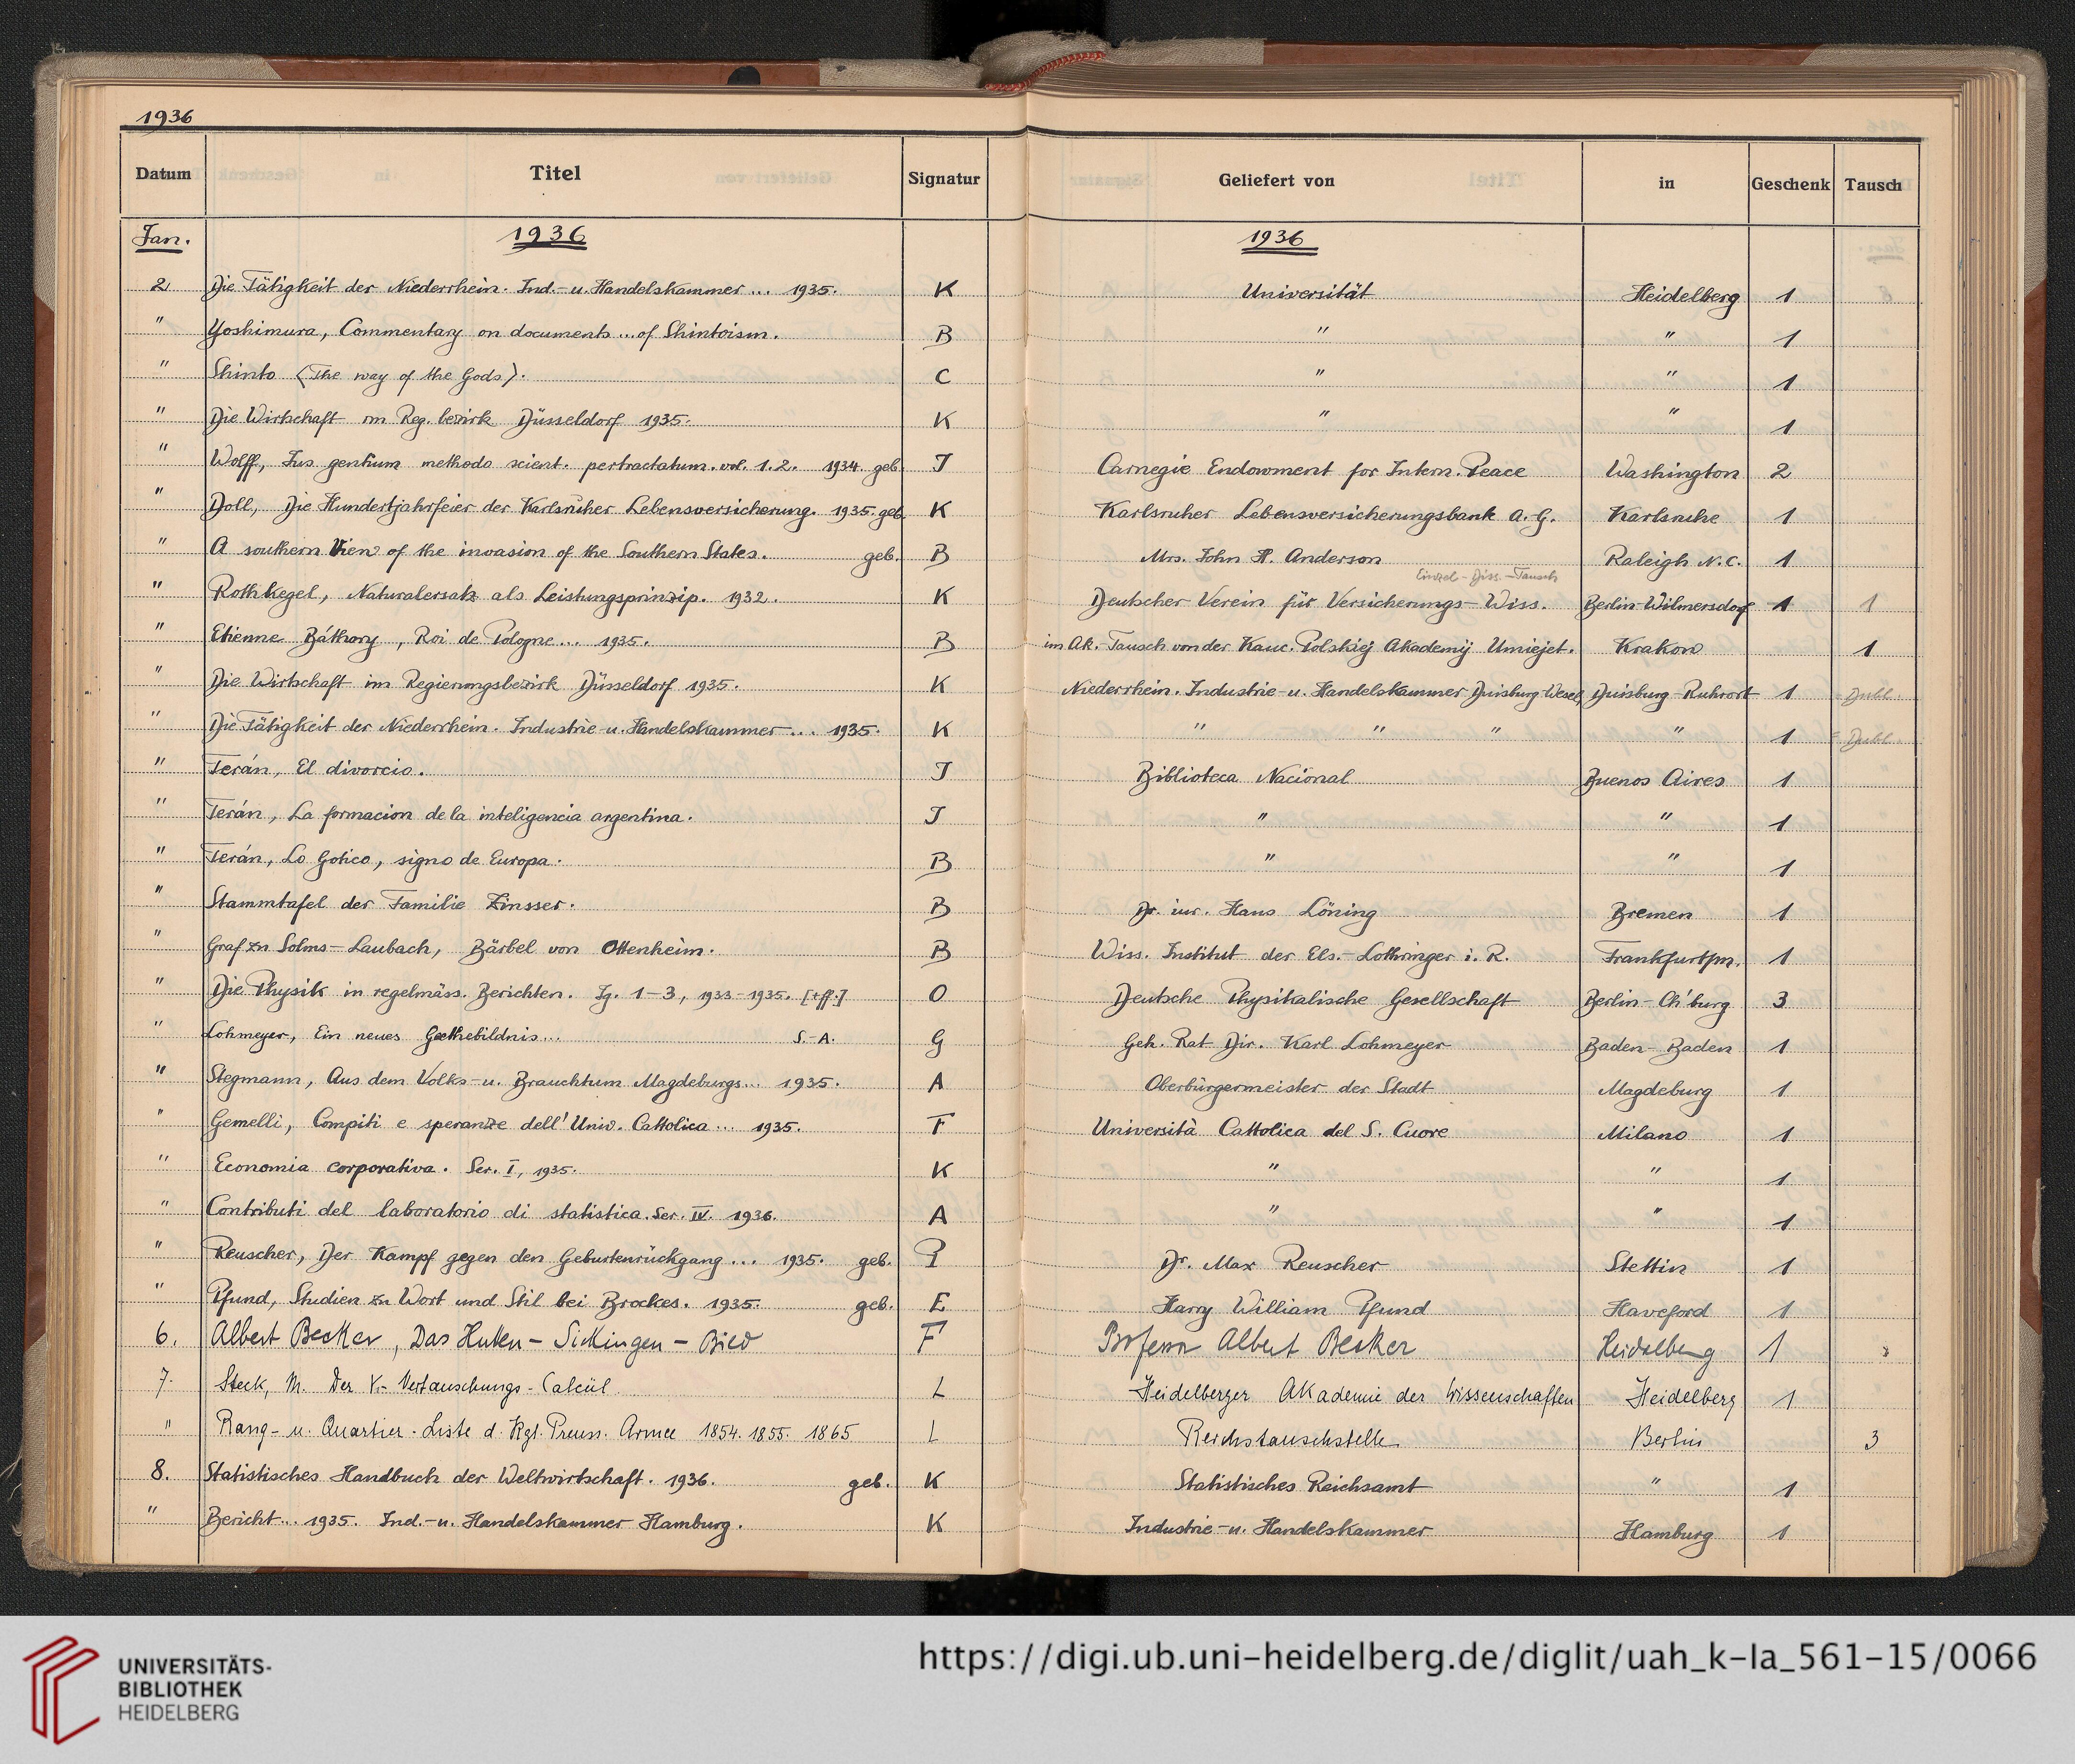 1936
Datum Titel Signatur Geliefert von in Geschenk Tausch
Jan. 1936 1936
2 Die Tätigkeit der Niederrhein. Ind.- u. Handelskammer... 1935. K Universität Heidelberg 1
" Yoshimura, Commentary on documents ... of Shintoism. B " " 1
" Shinto (The way of the Gods). C " " 1
" Die Wirtschaft im Reg. bezirk Düsseldorf 1935. K " " 1
" Wolff, Jus gentium methodo scient. pertractatum. vol. 1.2. 1934. geb. J Carnegie Endowment for Intern. Peace Washington 2
" Doll, Die Hundertjahrfeier der Karlsruher Lebensversicherung. 1935. geb. K Karlsruher Lebensversicherungsbank A.G. Karlsruhe 1
" A southern View of the invasion of the Southern States. geb. B Mrs. John H. Anderson Raleigh N.C. 1
Einzel-Diss.-Tausch
" Rothkegel, Naturalersatz als Leistungsprinzip. 1932. K Deutscher Verein für Versicherungs-Wiss. Berlin-Wilmersdorf 1 1
" Etienne Báthory, Roi de Pologne... 1935. B im Ak.-Tausch von der Kanc. Polskiej Akademij Umiejet. Krakow 1
" Die Wirtschaft im Regierungsbezirk Düsseldorf 1935. K Niederrhein. Industrie- u. Handelskammer Duisburg-Wesel, Duisburg-Ruhrort 1 = Dubl.
" Die Tätigkeit der Niederrhein. Industrie- u. Handelskammer... 1935. K " " " " 1 = Dubl.
" Terán, El divorcio. J Biblioteca Nacional Buenos Aires 1
" Terán, La formacion de la inteligencia argentina. J " " 1
" Terán, Lo gotico, signo de Europa. B " " 1
" Stammtafel der Familie Zinsser. B Dr. iur. Hans Löning Bremen 1
" Graf zu Solms-Laubach, Bärbel von Ottenheim. B Wiss. Institut der Els.-Lothringer i. R. Frankfurt/m. 1
" Die Physik in regelmäss. Berichten. Jg. 1-3, 1933-1935. [+ff.] O Deutsche Physikalische Gesellschaft Berlin-Ch'burg 3
" Lohmeyer, Ein neues Goethebildnis... S.-A. G Geh. Rat Dir. Karl Lohmeyer Baden-Baden 1
" Stegmann, Aus dem Volks- u. Brauchtum Magdeburgs... 1935. A Oberbürgermeister der Stadt Magdeburg 1
" Gemelli, Compiti e speranze dell' Univ. Cattolica... 1935. F Università Cattolica del S. Cuore Milano 1
" Economia corporativa. Ser. I, 1935. K " " 1
" Contributi del laboratorio di statistica. Ser. IV. 1936. A " " 1
" Reuscher, Der Kampf gegen den Geburtenrückgang... 1935. geb. P Dr. Max Reuscher Stettin 1
" Pfund, Studien zu Wort und Stil bei Brockes. 1935. geb. E Harry William Pfund Haveford 1
6. Albert Becker, Das Hutten-Sickingen-Bild F Professor Albert Becker Heidelberg 1
7. Steck, M. Der V.- Vertauschungs-Calcül. L Heidelberger Akademie der Wissenschaften Heidelberg 1
" Rang- u. Quartier-Liste d. Kgl. Preuss. Armee 1854. 1855. 1865 L Reichstauschstelle Berlin 3
8. Statistisches Handbuch der Weltwirtschaft. 1936. geb. K Statistisches Reichsamt " 1
" Bericht... 1935. Ind.- u. Handelskammer Hamburg. K Industrie- u. Handelskammer Hamburg 1
UNIVERSITÄTS-
BIBLIOTHEK
HEIDELBERG
https://digi.ub.uni-heidelberg.de/diglit/uah_k-Ia_561-15/0066